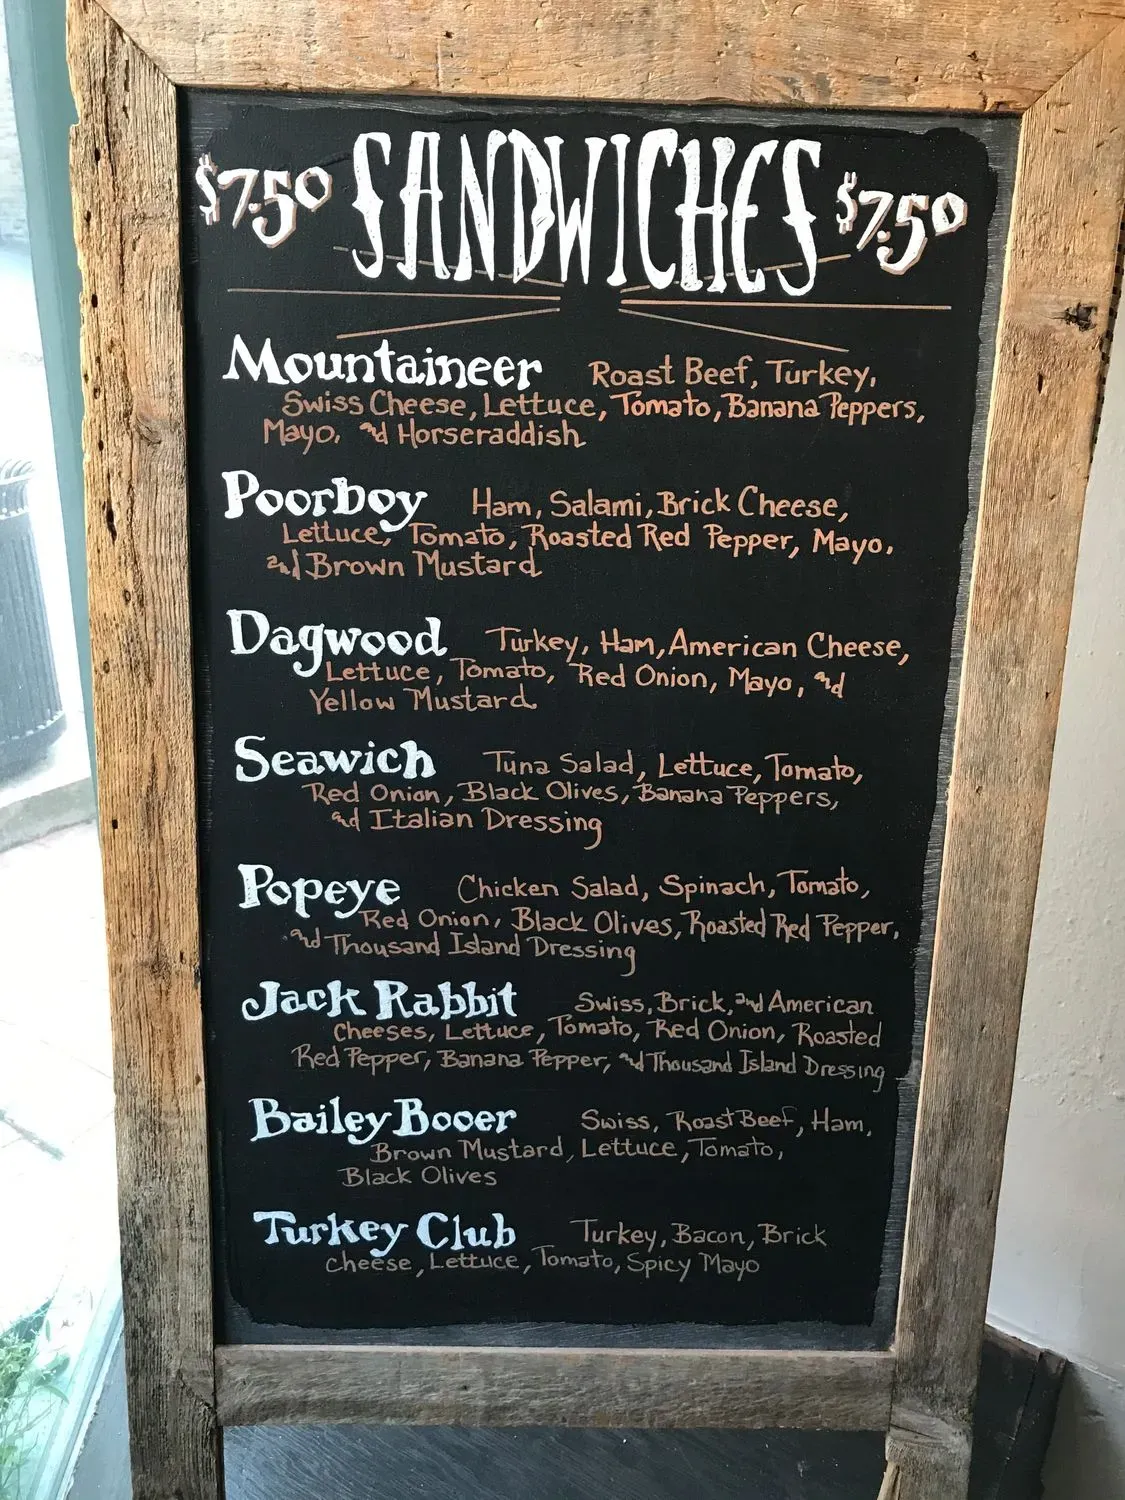 $7.50 SANDWICHES $7.50
Mountaineer Roast Beef, Turkey,
Swiss Cheese, Lettuce, Tomato, Banana Peppers,
Mayo, and Horseraddish
Poorboy Ham, Salami, Brick Cheese,
Lettuce, Tomato, Roasted Red Pepper, Mayo,
and Brown Mustard
Dagwood Turkey, Ham, American Cheese,
Lettuce, Tomato, Red Onion, Mayo, and
Yellow Mustard
Seawich Tuna Salad, Lettuce, Tomato,
Red Onion, Black Olives, Banana Peppers,
and Italian Dressing
Popeye Chicken Salad, Spinach, Tomato,
Red Onion, Black Olives, Roasted Red Pepper,
and Thousand Island Dressing
Jack Rabbit Swiss, Brick, and American
Cheeses, Lettuce, Tomato, Red Onion, Roasted
Red Pepper, Banana Pepper, and Thousand Island Dressing
Bailey Booer Swiss, Roast Beef, Ham,
Brown Mustard, Lettuce, Tomato,
Black Olives
Turkey Club Turkey, Bacon, Brick
Cheese, Lettuce, Tomato, Spicy Mayo